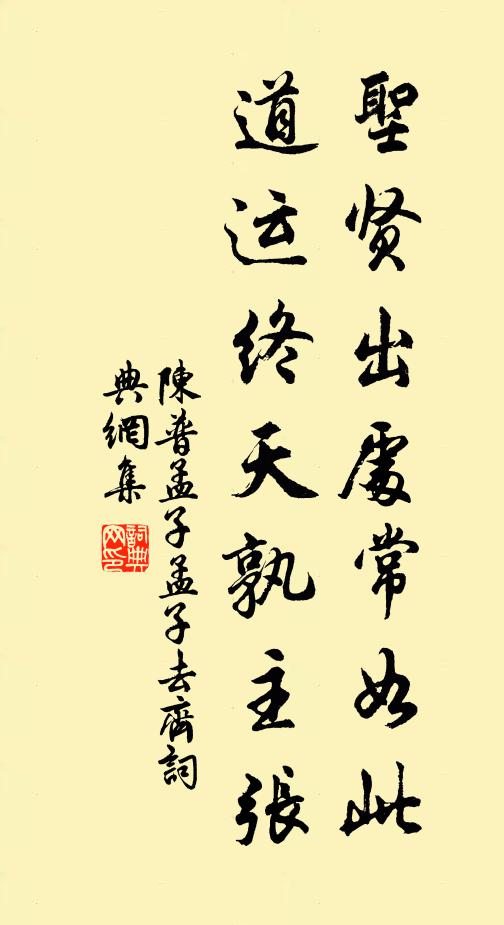 聖贤出處常如此
道运终天孰主張
陳普孟子孟子去齊詞
典網集
詞典网印